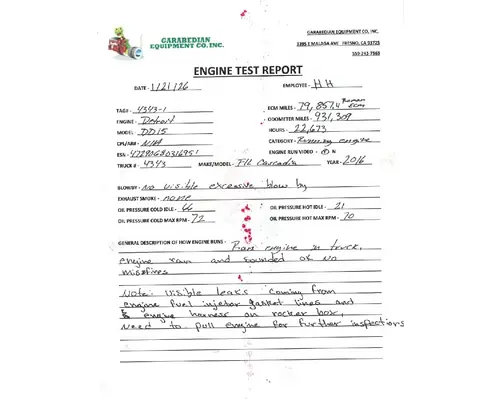 GARABEDIAN
EQUIPMENT CO. INC.
GARABEDIAN EQUIPMENT CO, INC.
3395 S MALAGA AVE FRESNO, CA 93725
559-243-7968
ENGINE TEST REPORT
DATE - 1/21/26 EMPLOYEE - HH
TAG# - 4343-1
ECM MILES - 79,857.4 Reman ECM
ENGINE - Detroit
ODOMETER MILES - 931,309
MODEL - DD15
HOURS - 22,673
CPL/AR# - N/A
CATEGORY - Running engine
ESN - 472906S0316951
ENGINE RUN VIDEO - Y N
TRUCK # - 4343 MAKE/MODEL - FHL Cascadia YEAR - 2016
BLOWBY - No visible excessive blow by
EXHAUST SMOKE - none
OIL PRESSURE COLD IDLE - 66 OIL PRESSURE HOT IDLE - 21
OIL PRESSURE COLD MAX RPM - 72 OIL PRESSURE HOT MAX RPM - 70
GENERAL DESCRIPTION OF HOW ENGINE RUNS - Ran engine in truck,
engine ran and sounded ok no
missfires
Note: visible leaks coming from
engine fuel injector gasket lines and
engine harness on rocker box,
Need to pull engine for further inspections